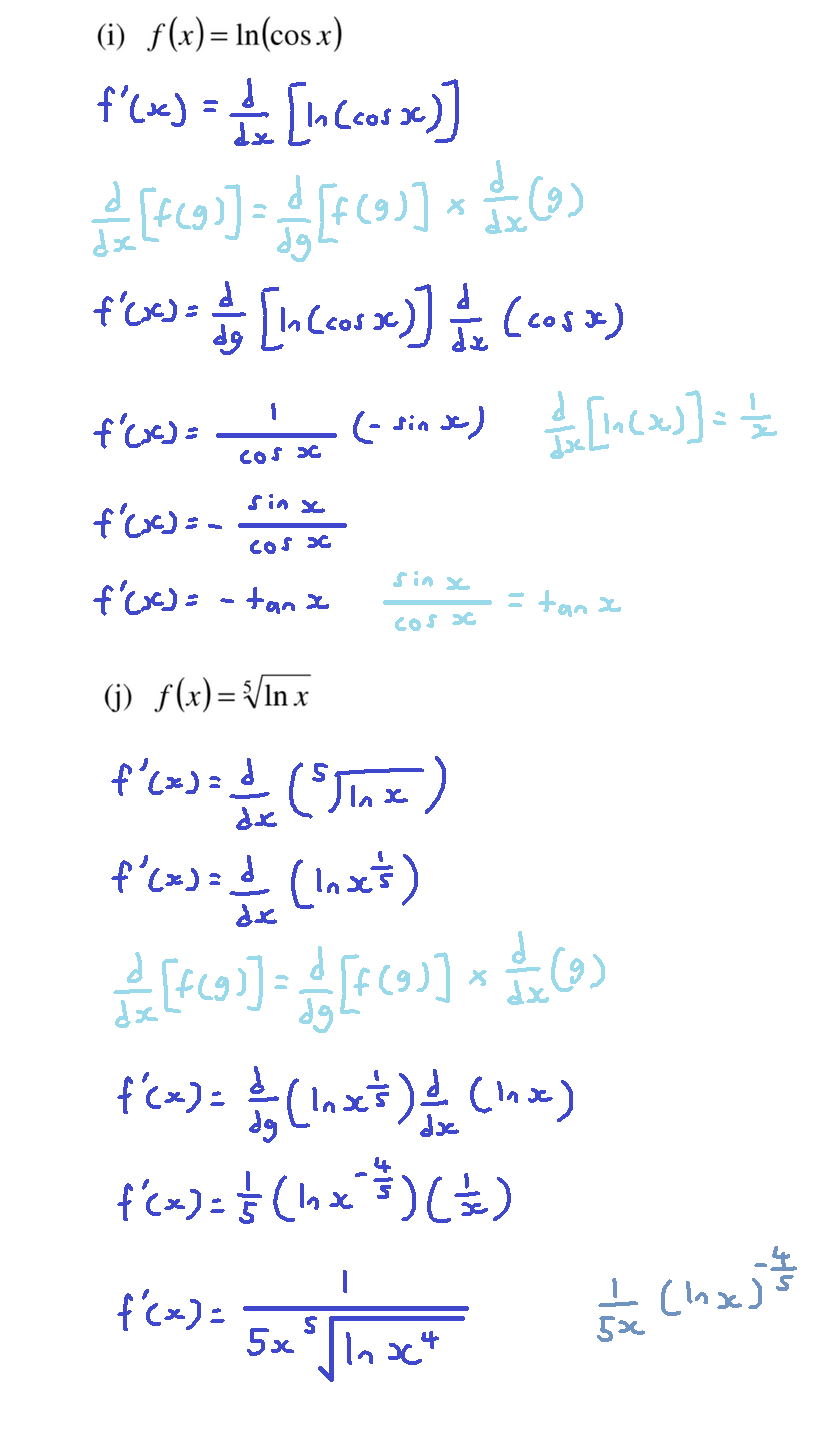 (i) f(x) = ln(cos x)
f'(x) = d/dx [ln(cos x)]
d/dx [f(g)] = d/dg [f(g)] × d/dx (g)
f'(x) = d/dg [ln(cos x)] d/dx (cos x)
f'(x) = 1/cos x (- sin x) d/dx [ln(x)] = 1/x
f'(x) = - sin x/cos x
f'(x) = - tan x sin x/cos x = tan x
(j) f(x) = ⁵√ln x
f'(x) = d/dx (⁵√ln x)
f'(x) = d/dx (ln x^(1/5))
d/dx [f(g)] = d/dg [f(g)] × d/dx (g)
f'(x) = d/dg (ln x^(1/5)) d/dx (ln x)
f'(x) = 1/5 (ln x^(-4/5)) (1/x)
f'(x) = 1/(5x ⁵√ln x⁴) 1/5x (ln x)^(-4/5)